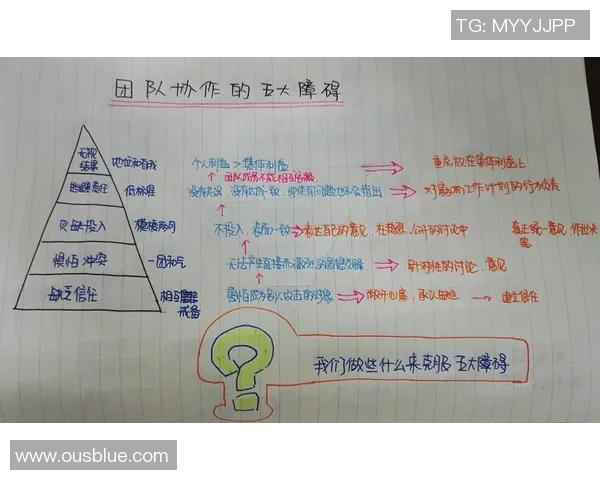 TG: MYYJJPP
团队协作的五大障碍
无视结果 地位和自我 个人利益>集体利益 重点放在集体利益上
团队成员不能相互
逃避责任 低标准 没有达成一致,即使有问题也不会指出 对影响工作计划的行为负责
欠缺投入 模棱两可 不投入,表面一致 表达自己的意见,在热烈、公开的讨论中 真正统一意见,作出决策
惧怕冲突 一团和气 无法产生直接而激烈的思想交锋 针对性的讨论、意见
缺乏信任 相互戒备 害怕成为别人攻击的对象 敞开心扉,承认 建立信任
我们做些什么来克服五大障碍
www.ousblue.com